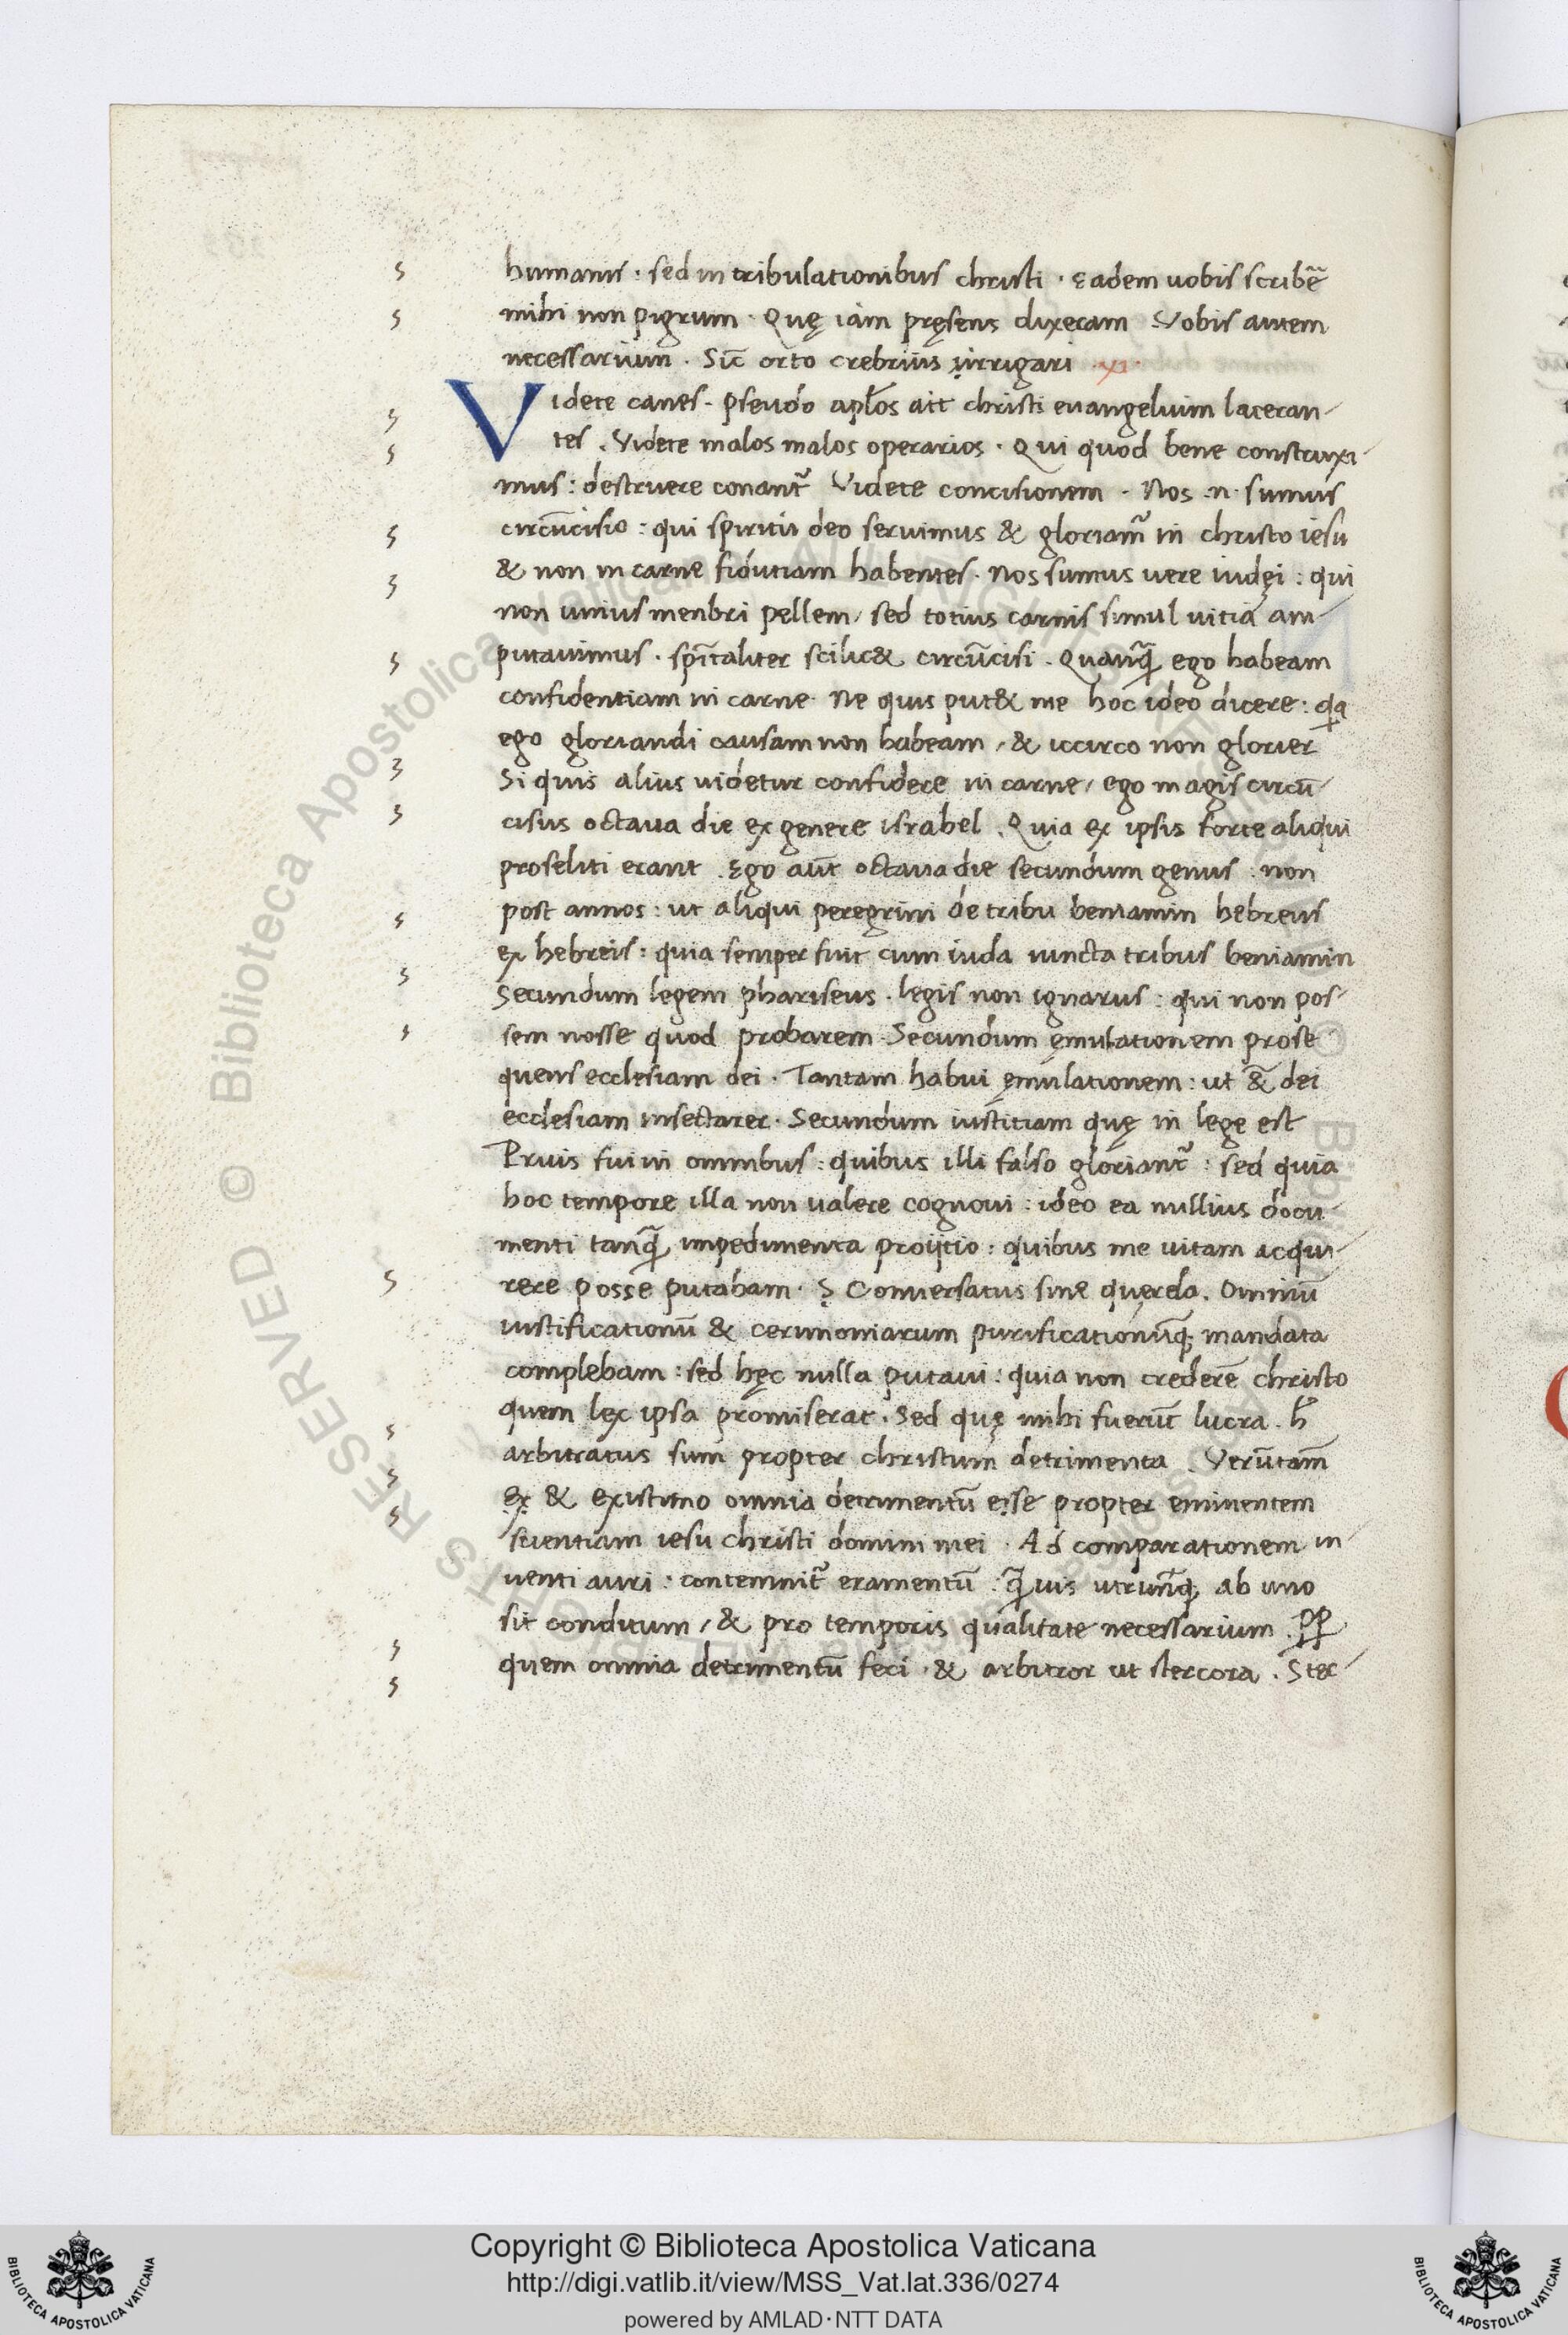 humanis · sed in tribulationibus christi · Eadem uobis scribē
mihi non pigrum · Quę iam pręsens dixeram Vobis autem
necessarium · Sic̄ orto crebrius irrigari ·xi·
Videte canes · pseudo apl̄os ait christi euangelium laceran-
tes . Videte malos malos operarios · Qui quod bene construxi-
mus : destruere conant᷑ Videte concisionem · Nos .n. sumus
circūcisio : qui spiritu deo seruimus & gloriam᷑ in christo iesu
& non in carne fidutiam habentes · Nos sumus uere iudęi : qui
non unius menbri pellem / sed totius carnis simul uitia am-
putauimus . spīt̄aliter scilic& circūcisi . Quanq̄ ego habeam
confidentiam in carne · Ne quis put& me hoc ideo dicere : qa
ego gloriandi causam non habeam / & iccirco non glorier
Si quis alius uidetur confidere in carne / ego magis circū-
cisus octaua die ex genere israhel . Quia ex ipsis forte aliqui
proseliti erant . Ego aūt octaua die secundum genus : non
post annos : ut aliqui peregrini de tribu beniamin hebreus
ex hebreis : quia semper fuit cum iuda iuncta tribus beniamin
Secundum legem phariseus . legis non ignarus : qui non pos-
sem nosse quod probarem · Secundum ęmulationem prose
quens ecclesiam dei . Tantam habui ęmulationem : ut & dei
ecclesiam insectarer . Secundum iustitiam quę in lege est
Pruis fui in omnibus : quibus illi falso gloriant᷑ : sed quia
hoc tempore illa non ualere cognoui : ideo ea nullius docu-
menti tanq̄ impedimenta proijcio : quibus me uitam acqui-
rere posse putabam · Conuersatus sine querela . Omniū
iustificationū & cerimoniarum purificationūq; mandata
complebam : sed hęc nulla putaui : quia non crederē christo
quem lex ipsa promiserat . Sed quę mihi fuerūt lucra . h̄
arbitratus sum propter christum detrimenta . Verūtam̄
ex & existimo omnia detrimentū esse propter eminentem
scientiam iesu christi domini mei · Ad comparationem in-
uenti auri : contemnit᷑ eramentū : q̄uis utrunq; ab uno
sit conditum / & pro temporis qualitate necessarium . pp
quem omnia detrimentū feci . & arbitror ut stercora . Ster-
Copyright © Biblioteca Apostolica Vaticana
http://digi.vatlib.it/view/MSS_Vat.lat.336/0274
powered by AMLAD·NTT DATA
BIBLIOTECA APOSTOLICA VATICANA
BIBLIOTECA APOSTOLICA VATICANA